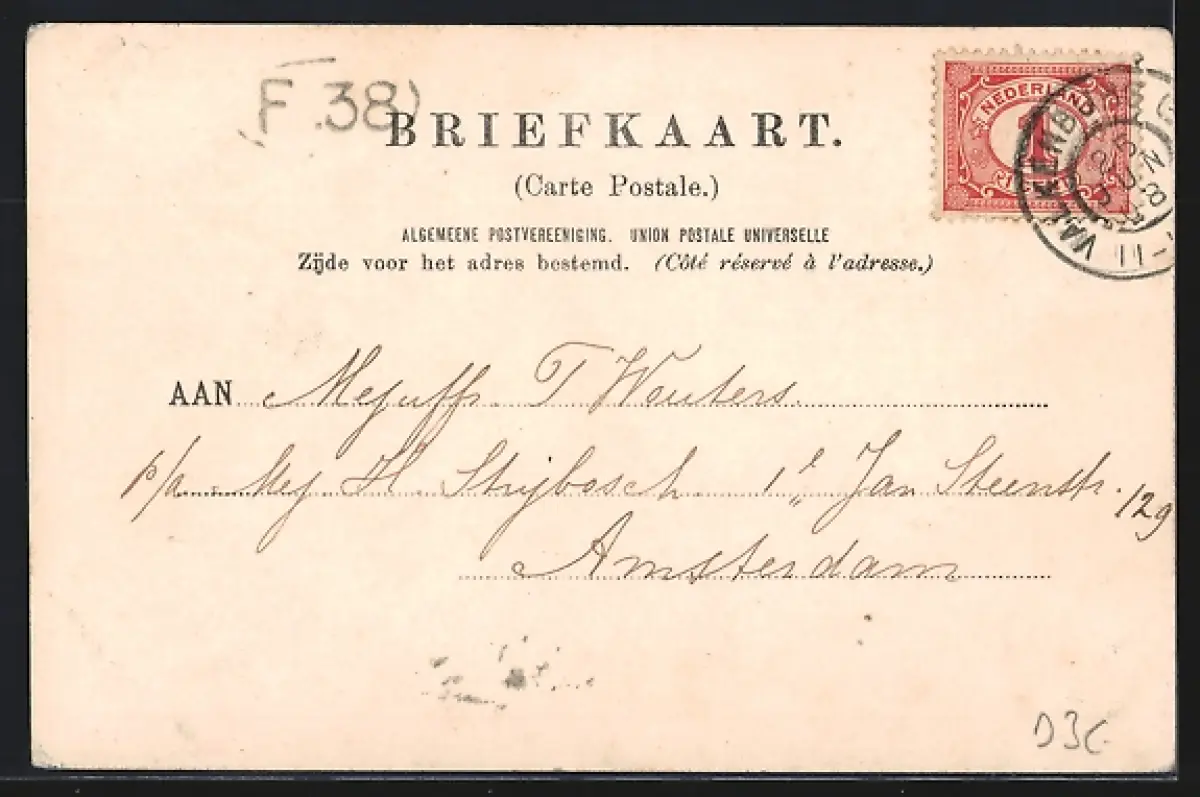 F.38)
BRIEFKAART.
(Carte Postale.)
ALGEMEENE POSTVEREENIGING. UNION POSTALE UNIVERSELLE
Zijde voor het adres bestemd. (Côté réservé à l'adresse.)
NEDERLAND
1
VALKENB
AAN Mejuffr. T Wouters.
p/a Mej H. Strijbosch 1e Jan Steenstr. 129
Amsterdam
D3C